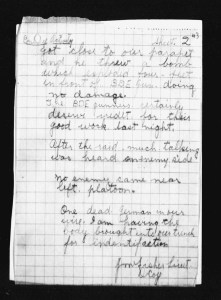 Sheet 2
got close to our parapet
and he threw a bomb
which exploded four feet
in front of BDE bomb doing
no damage.
The BDE gunners certainly
deserve credit for their
good work last night.
After the raid, much talking
was heard on enemy side
No enemy came near
left platoon.
One dead German
I am having the
body brought into our trench
for identifaction